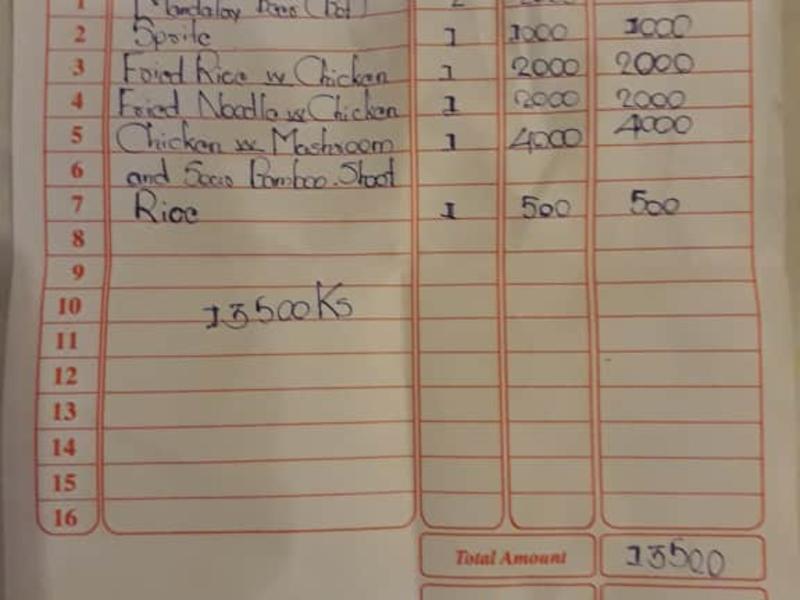 1 Mandalay
2 Sprite 1 1000 1000
3 Fried Rice w Chicken 1 2000 2000
4 Fried Noodle w Chicken 1 2000 2000
5 Chicken w Mashroom 1 4000 4000
6 and Soao Bamboo.Shoot
7 Rice 1 500 500
8
9
10 13500Ks
11
12
13
14
15
16
Total Amount 13500